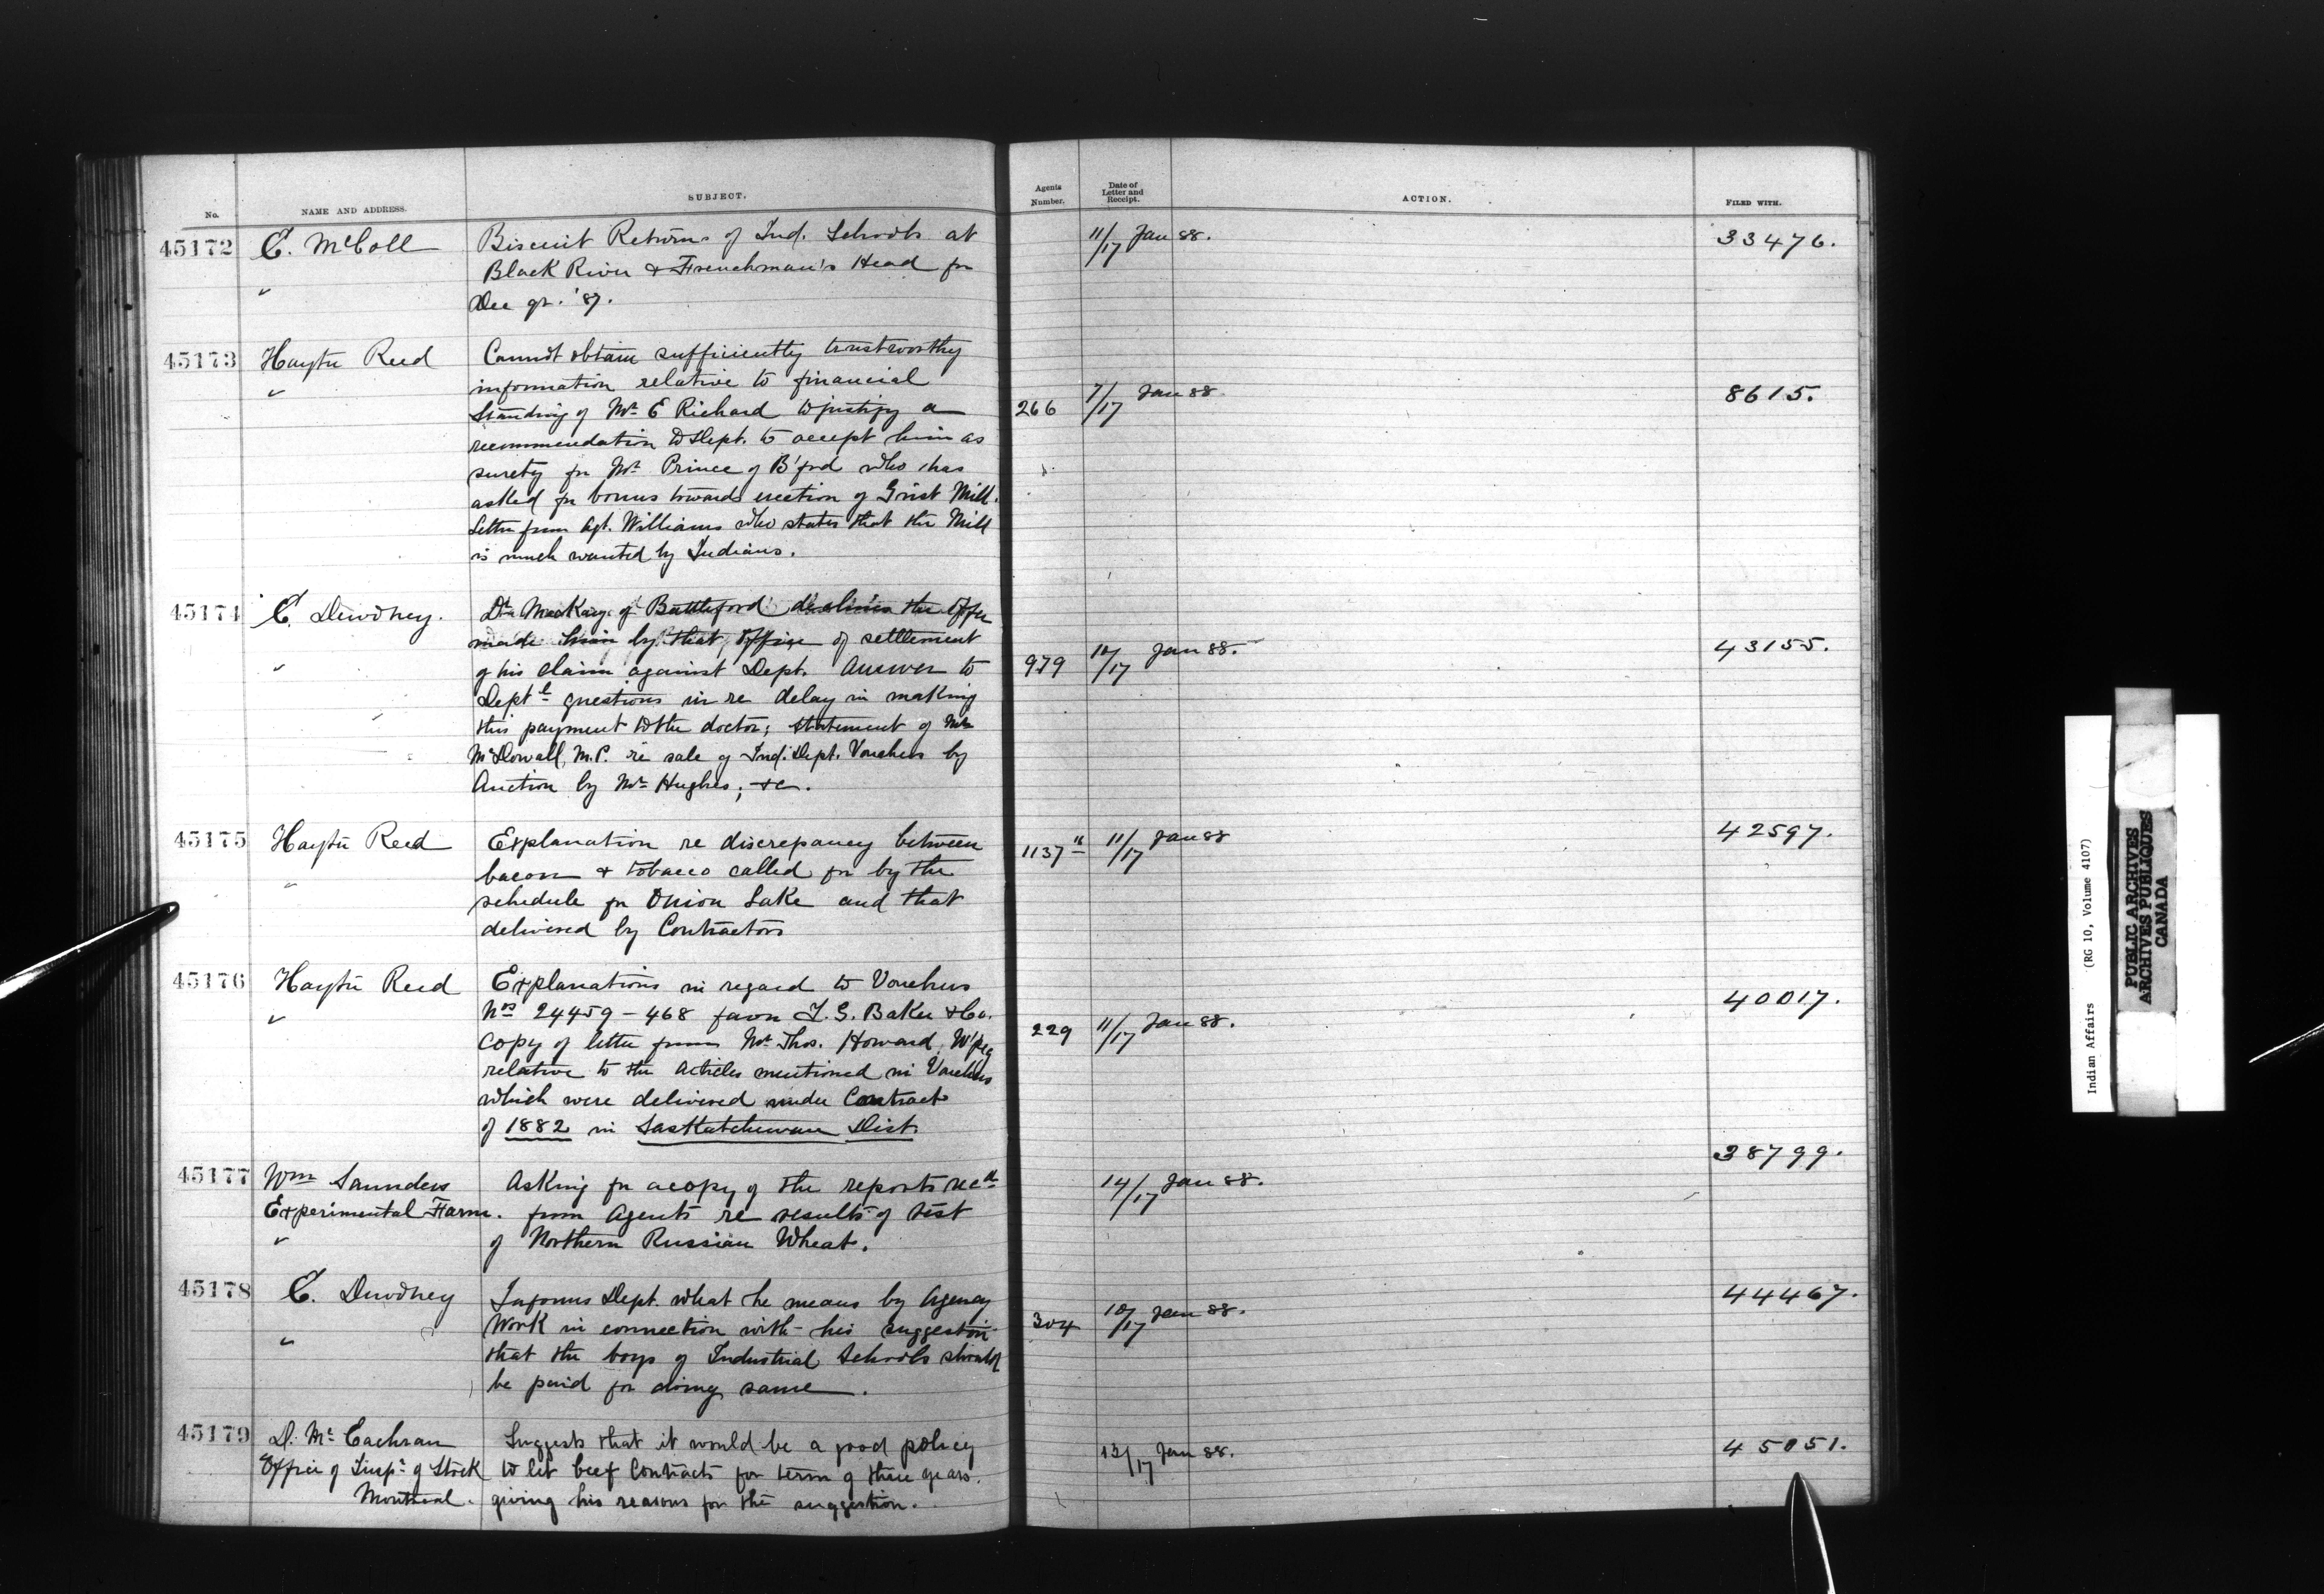 No.
NAME AND ADDRESS.
SUBJECT.
Agents Number.
Date of Letter and Receipt.
ACTION.
FILED WITH.
45172
E. McColl
"
Biscuit Returns of Ind. Schools at
Black River & Frenchman's Head for
Dec qr. '87.
11/17 Jan 88.
33476.
45173
Hayter Reed
"
Cannot obtain sufficiently trustworthy
information relative to financial
Standing of Mr. E Richard to justify a
recommendation to Dept. to accept him as
surety for Mr. Prince of B'ford who has
asked for bonus towards erection of Grist Mill.
Letter from Agt. Williams who states that the Mill
is much wanted by Indians.
266
7/17 Jan 88
8615.
45174
E. Dewdney.
"
Dr. MacKay of Battleford declines the offer
made him by that office of settlement
of his claim against Dept. Answer to
Deptl questions in re delay in making
this payment to the doctor; statement of Mr.
McDowall, M.P. re sale of Ind. Dept. Vouchers by
Auction by Mr. Hughes; &c.
979
10/17 Jan 88.
43155.
45175
Hayter Reed
"
Explanation re discrepancy between
bacon & tobacco called for by the
schedule for Onion Lake and that
delivered by Contractors
1137
11/17 Jan 88
42597.
45176
Hayter Reed
"
Explanations in regard to Vouchers
Nos 24459 - 468 favor I. G. Baker & Co.
Copy of letter from Mr. Thos. Howard, W'peg
relative to the articles mentioned in Vouchers
which were delivered under Contract
of 1882 in Saskatchewan Dist.
229
11/17 Jan 88.
40017.
45177
Wm Saunders
Experimental Farm.
"
Asking for a copy of the reports recd
from Agents re results of test
of Northern Russian Wheat.
14/17 Jan 88.
38799.
45178
E. Dewdney
"
Informs Dept. what he means by Agency
Work in connection with his suggestion
that the boys of Industrial Schools should
be paid for doing same.
304
10/17 Jan 88.
44467.
45179
D. McEachran
Office of Inspr. of Stock
Montreal.
Suggests that it would be a good policy
to let beef Contracts for term of three years.
giving his reasons for the suggestion.
13/17 Jan 88.
45051.
Indian Affairs (RG 10, Volume 4107)
PUBLIC ARCHIVES
ARCHIVES PUBLIQUES
CANADA